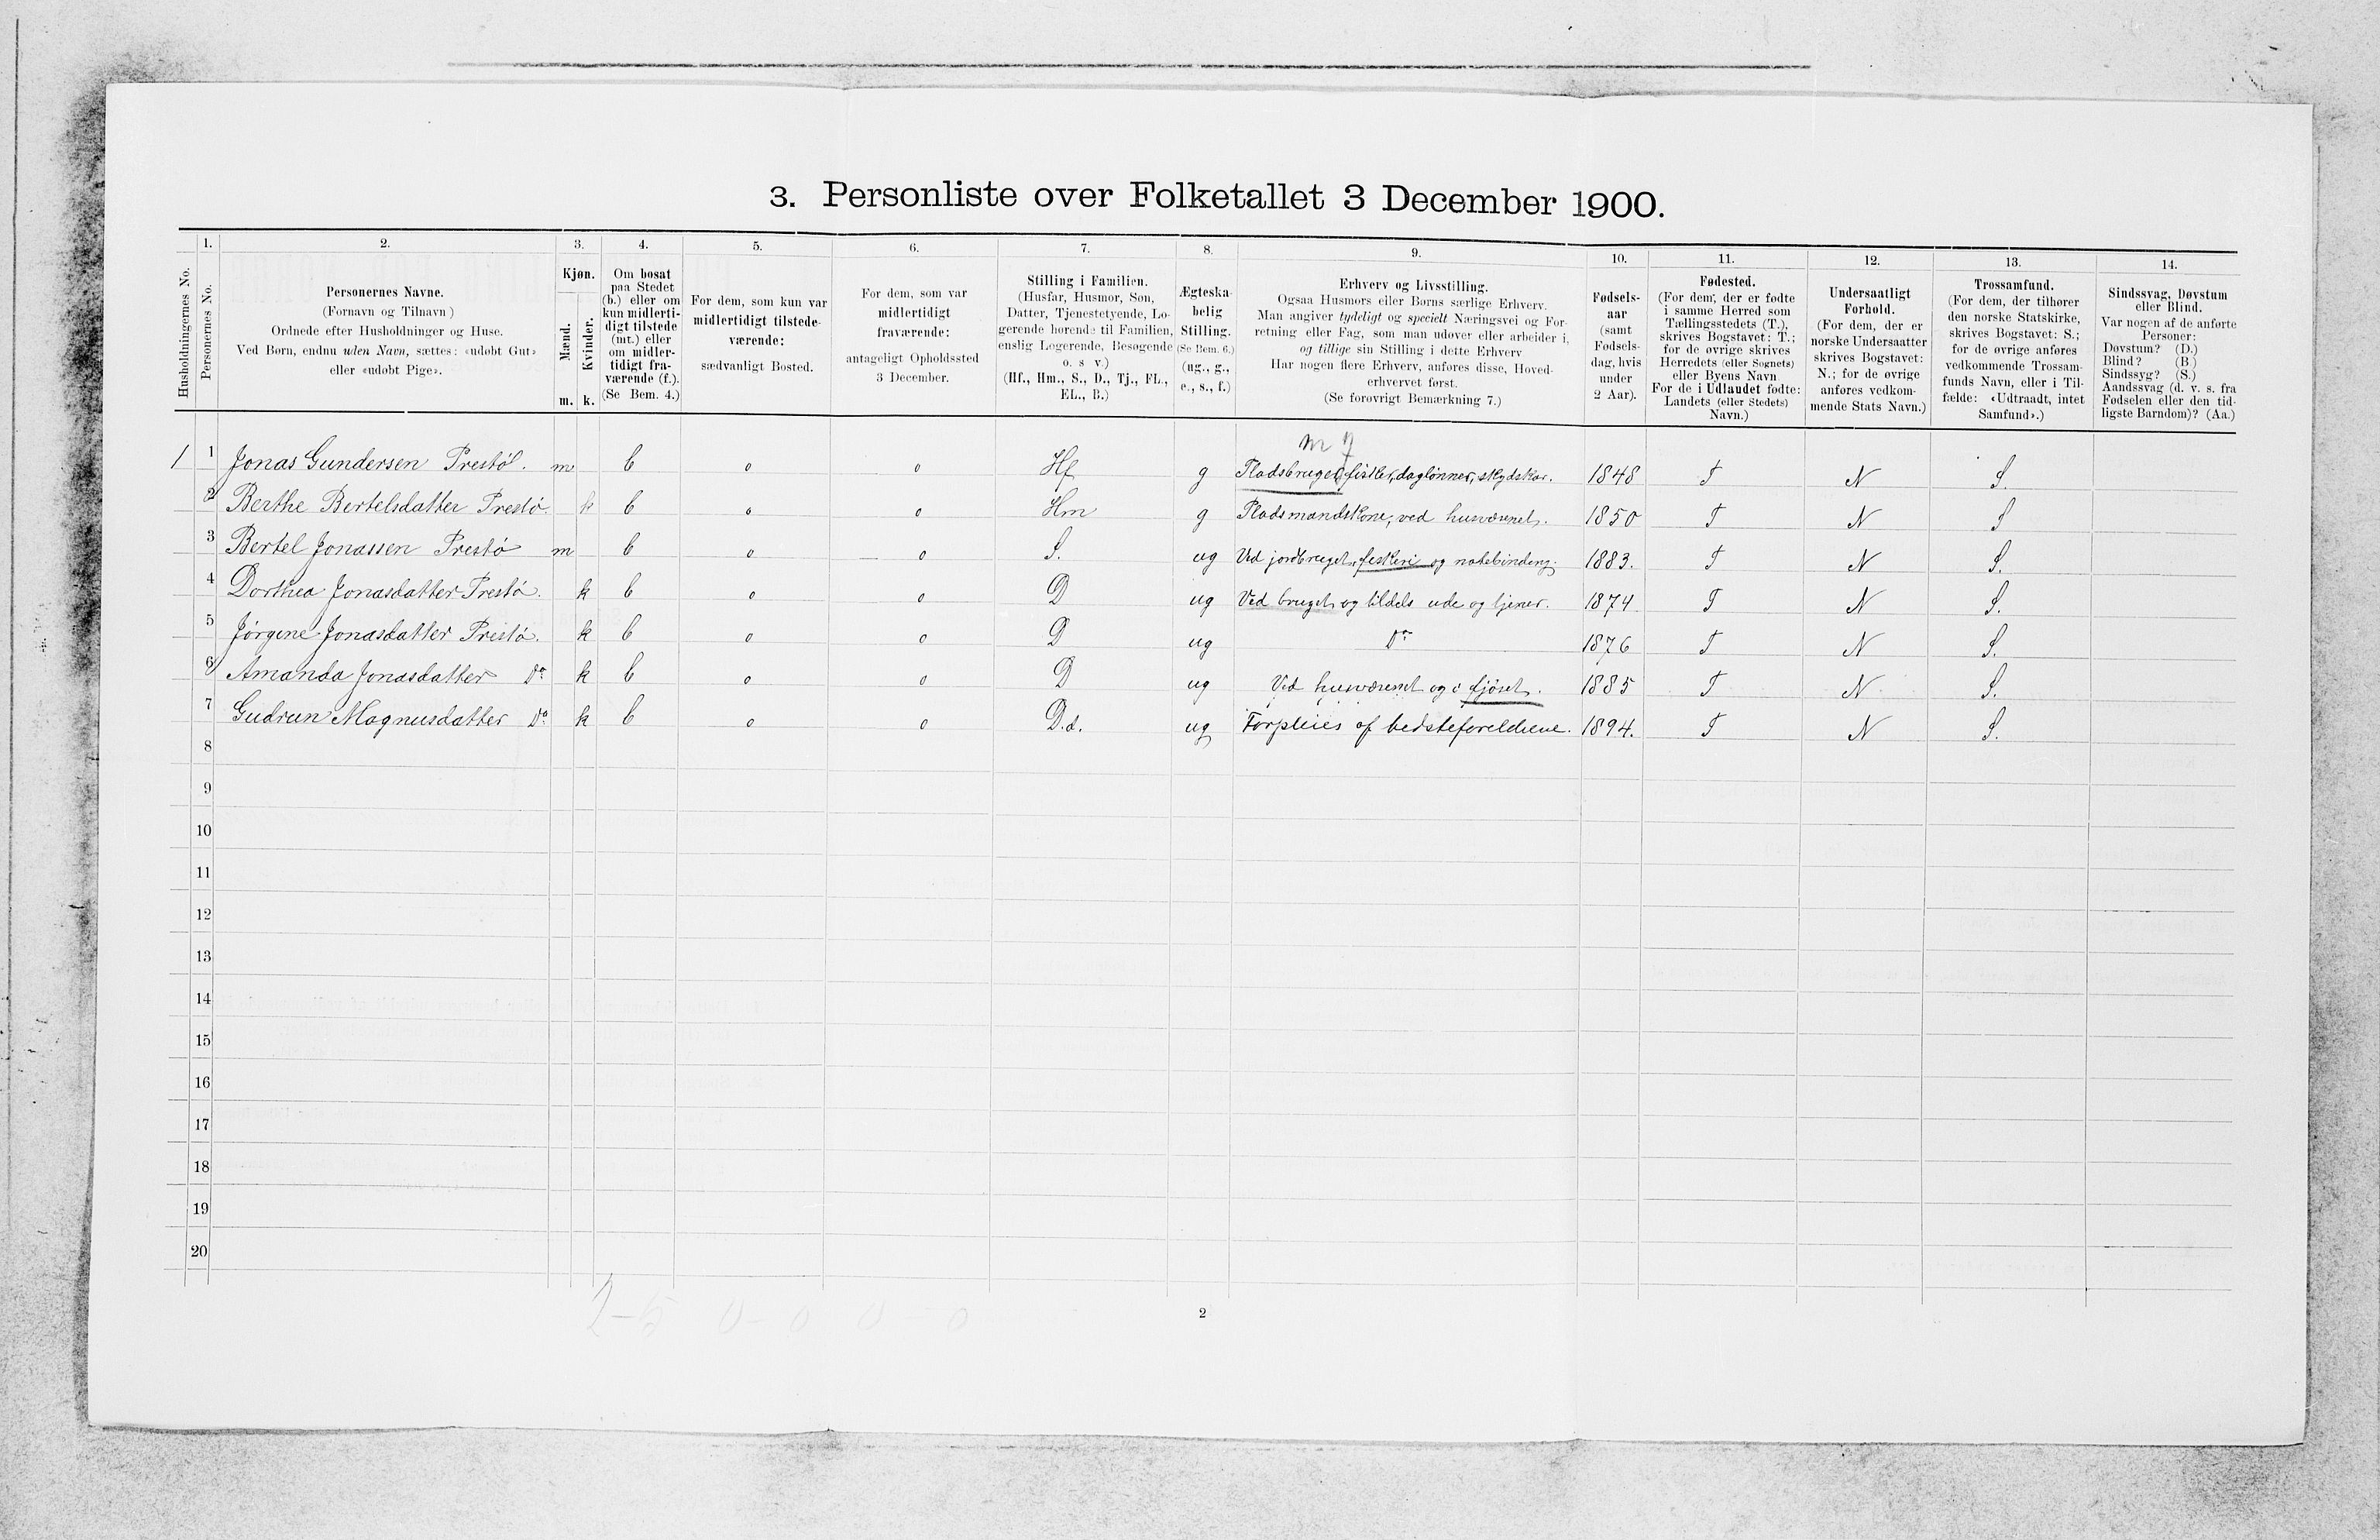 3. Personliste over Folketallet 3 December 1900.
1. 2. 3. 4. 5. 6. 7. 8. 9. 10. 11. 12. 13. 14.
Husholdningernes No.
Personernes No.
Personernes Navne.
(Fornavn og Tilnavn)
Ordnede efter Husholdninger og Huse.
Ved Børn, endnu uden Navn, sættes: «udøbt Gut»
eller «udøbt Pige».
Kjøn.
Mænd.
Kvinder.
m. k.
Om bosat
paa Stedet
(b.) eller om
kun midlerti-
digt tilstede
(mt.) eller
om midler-
tidigt fra-
værende (f.).
(Se Bem. 4.)
For dem, som kun var
midlertidigt tilstede-
værende:
sædvanligt Bosted.
For dem, som var
midlertidigt
fraværende:
antageligt Opholdssted
3 December.
Stilling i Familien.
(Husfar, Husmor, Søn,
Datter, Tjenestetyende, Lo-
gerende hørende til Familien,
enslig Logerende, Besøgende
o. s v.)
(Hf., Hm., S., D., Tj., FL.,
EL., B.)
Ægteska-
belig
Stilling.
(Se Bem. 6.)
(ug., g.,
e., s., f.)
Erhverv og Livsstilling.
Ogsaa Husmors eller Børns særlige Erhverv.
Man angiver tydeligt og specielt Næringsvei og For-
retning eller Fag, som man udøver eller arbeider i,
og tillige sin Stilling i dette Erhverv
Har nogen flere Erhverv, anføres disse, Hoved-
erhvervet først.
(Se forøvrigt Bemærkning 7.)
Fødsels-
aar
(samt
Fødsels-
dag, hvis
under
2 Aar).
Fødested.
(For dem, der er fødte
i samme Herred som
Tællingsstedets (T.),
skrives Bogstavet: T.;
for de øvrige skrives
Herredets (eller Sognets)
eller Byens Navn
For de i Udlandet fødte:
Landets (eller Stedets)
Navn.)
Undersaatligt
Forhold.
(For dem, der er
norske Undersaatter
skrives Bogstavet:
N.; for de øvrige
anføres vedkom-
mende Stats Navn.)
Trossamfund.
(For dem, der tilhører
den norske Statskirke,
skrives Bogstavet: S.;
for de øvrige anføres
vedkommende Trossam-
funds Navn, eller i Til-
fælde: «Udtraadt, intet
Samfund».)
Sindssvag, Døvstum
eller Blind.
Var nogen af de anførte
Personer:
Døvstum? (D.)
Blind? (B)
Sindssyg? (S.)
Aandssvag (d. v. s. fra
Fødselen eller den tid-
ligste Barndom)? (Aa.)
m 7
1 1 Jonas Gundersen Prestø. m b o o Hf g Pladsbruger, fisker, daglønner, skydskar. 1848 T N S.
2 Berthe Bertelsdatter Prestø. k b o o Hm g Pladsmandskone, ved husvæsenet. 1850 T N S
3 Bertel Jonassen Prestø m b o o S. ug Ved jordbruget, fiskeri og notebinding. 1883. T N S.
4 Dorthea Jonasdatter Prestø. k b o o D ug Ved bruget, og tildels ude og tjener. 1874 T N S.
5 Jørgine Jonasdatter Prestø. k b o o D ug Do 1876 T N S.
6 Amanda Jonasdatter Do k b o o D ug Ved husvæsenet og i fjøset. 1885 T N S.
7 Gudrun Magnusdatter Do k b o o D.d. ug Forpleies af bedsteforeldrene. 1894. T N S.
8
9
10
11
12
13
14
15
16
17
18
19
20
2-5 0-0 0-0
2